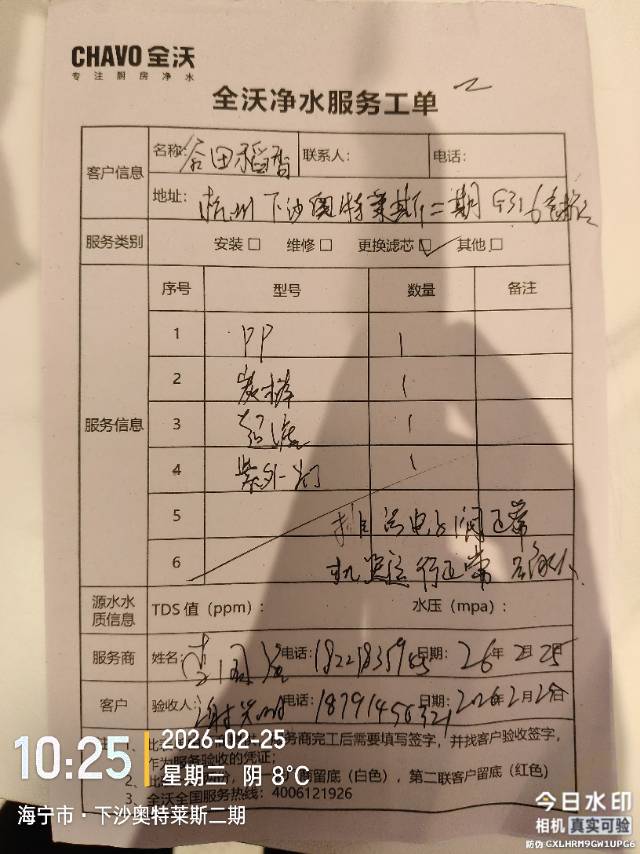 CHAVO 全沃
专注厨房净水
全沃净水服务工单
客户信息
名称: 谷田稻香 联系人: 电话:
地址: 杭州下沙奥特莱斯二期 G316
服务类别 安装□ 维修□ 更换滤芯☑ 其他□
服务信息
序号 型号 数量 备注
1 PP 1
2 炭棒 1
3 超滤 1
4 紫外灯 1
5 排污电磁阀正常
6 机器运行正常
源水水质信息 TDS 值(ppm): 水压(mpa):
服务商 姓名: 电话: 日期: 26年2月25
客户 验收人: 电话: 日期: 2026年2月
务商完工后需要填写签字,并找客户验收签字,
作为服务验收的凭证;
留底(白色),第二联客户留底(红色)
3、全沃全国服务热线:4006121926
10:25
2026-02-25
星期三 阴 8℃
海宁市·下沙奥特莱斯二期
今日水印
相机 真实可验
防伪 GXLHRM9GW1UPG6